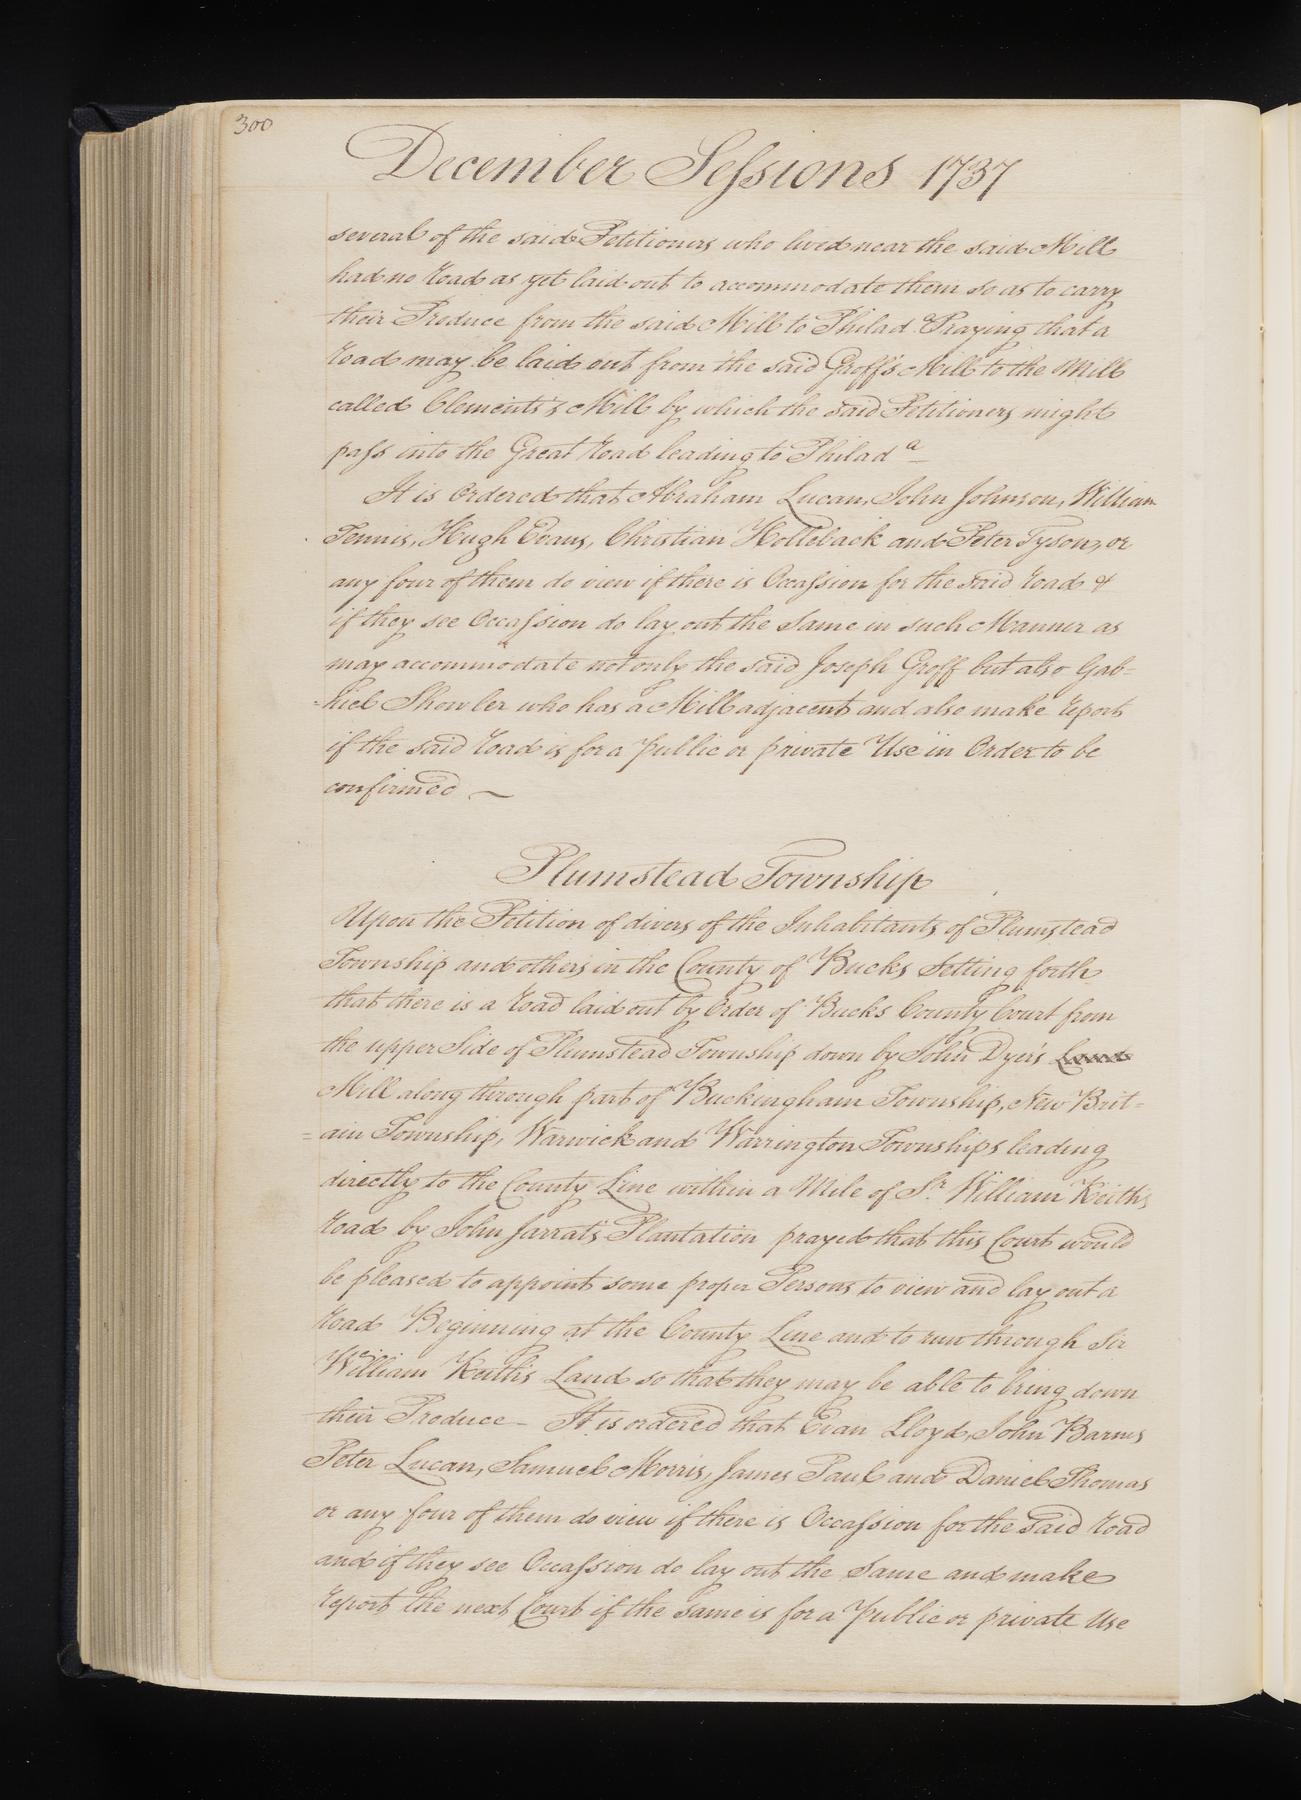 300
December Sessions 1737
several of the said Petitioners who lived near the said Mill
had no road as yet laid out to accommodate them so as to carry
their Produce from the said Mill to Philad. Praying that a
road may be laid out from the said Groff's Mill to the Mill
called Clements's Mill by which the said Petitioners might
pass into the Great road leading to Philad a
It is Ordered that Abraham Lucan, John Johnson, William
Tennis, Hugh Evans, Christian Holleback and Peter Tyson, or
any four of them do view if there is Occassion for the said road &
if they see Occassion do lay out the Same in such Manner as
may accommodate not only the said Joseph Groff but also Gab=
=riel Showler who has a Mill adjacent and also make report
if the said road is for a public or private Use in Order to be
confirmed ~
Plumstead Township
Upon the Petition of divers of the Inhabitants of Plumstead
Township and others in the County of Bucks Setting forth
that there is a road laid out by Order of Bucks County Court from
the upper Side of Plumstead Township down by John Dyer's Land
Mill along through part of Buckingham Township, New Brit=
=ain Township, Warwick and Warrington Townships leading
directly to the County Line within a Mile of Sr. William Keith's
road by John Jarrat's Plantation prayed that this Court would
be pleased to appoint some proper Persons to view and lay out a
road Beginning at the County Line and to run through Sir
William Keith's Land so that they may be able to bring down
their Produce - It is ordered that Evan Lloyd, John Barns
Peter Lucan, Samuel Morris, James Paul and Daniel Thomas
or any four of them do view if there is Occassion for the said road
and if they see Occassion do lay out the Same and make
report the next Court if the same is for a public or private Use